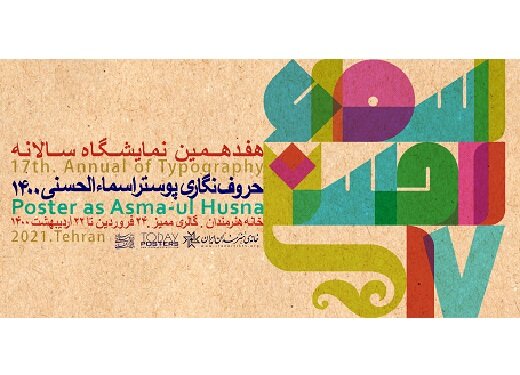 اسماء
الحسنی
۱۷
هفدهمین نمایشگاه سالانه
17th. Annual of Typography
حروف‌نگاری پوستر اسماءالحسنی ۱۴۰۰
Poster as Asma-ul Husna
خانه هنرمندان . گالری ممیز . ۲۴ فروردین تا ۲۲ اردیبهشت ۱۴۰۰
2021.Tehran
TODAY
POSTERS
خانه‌ی هنرمندان ایران